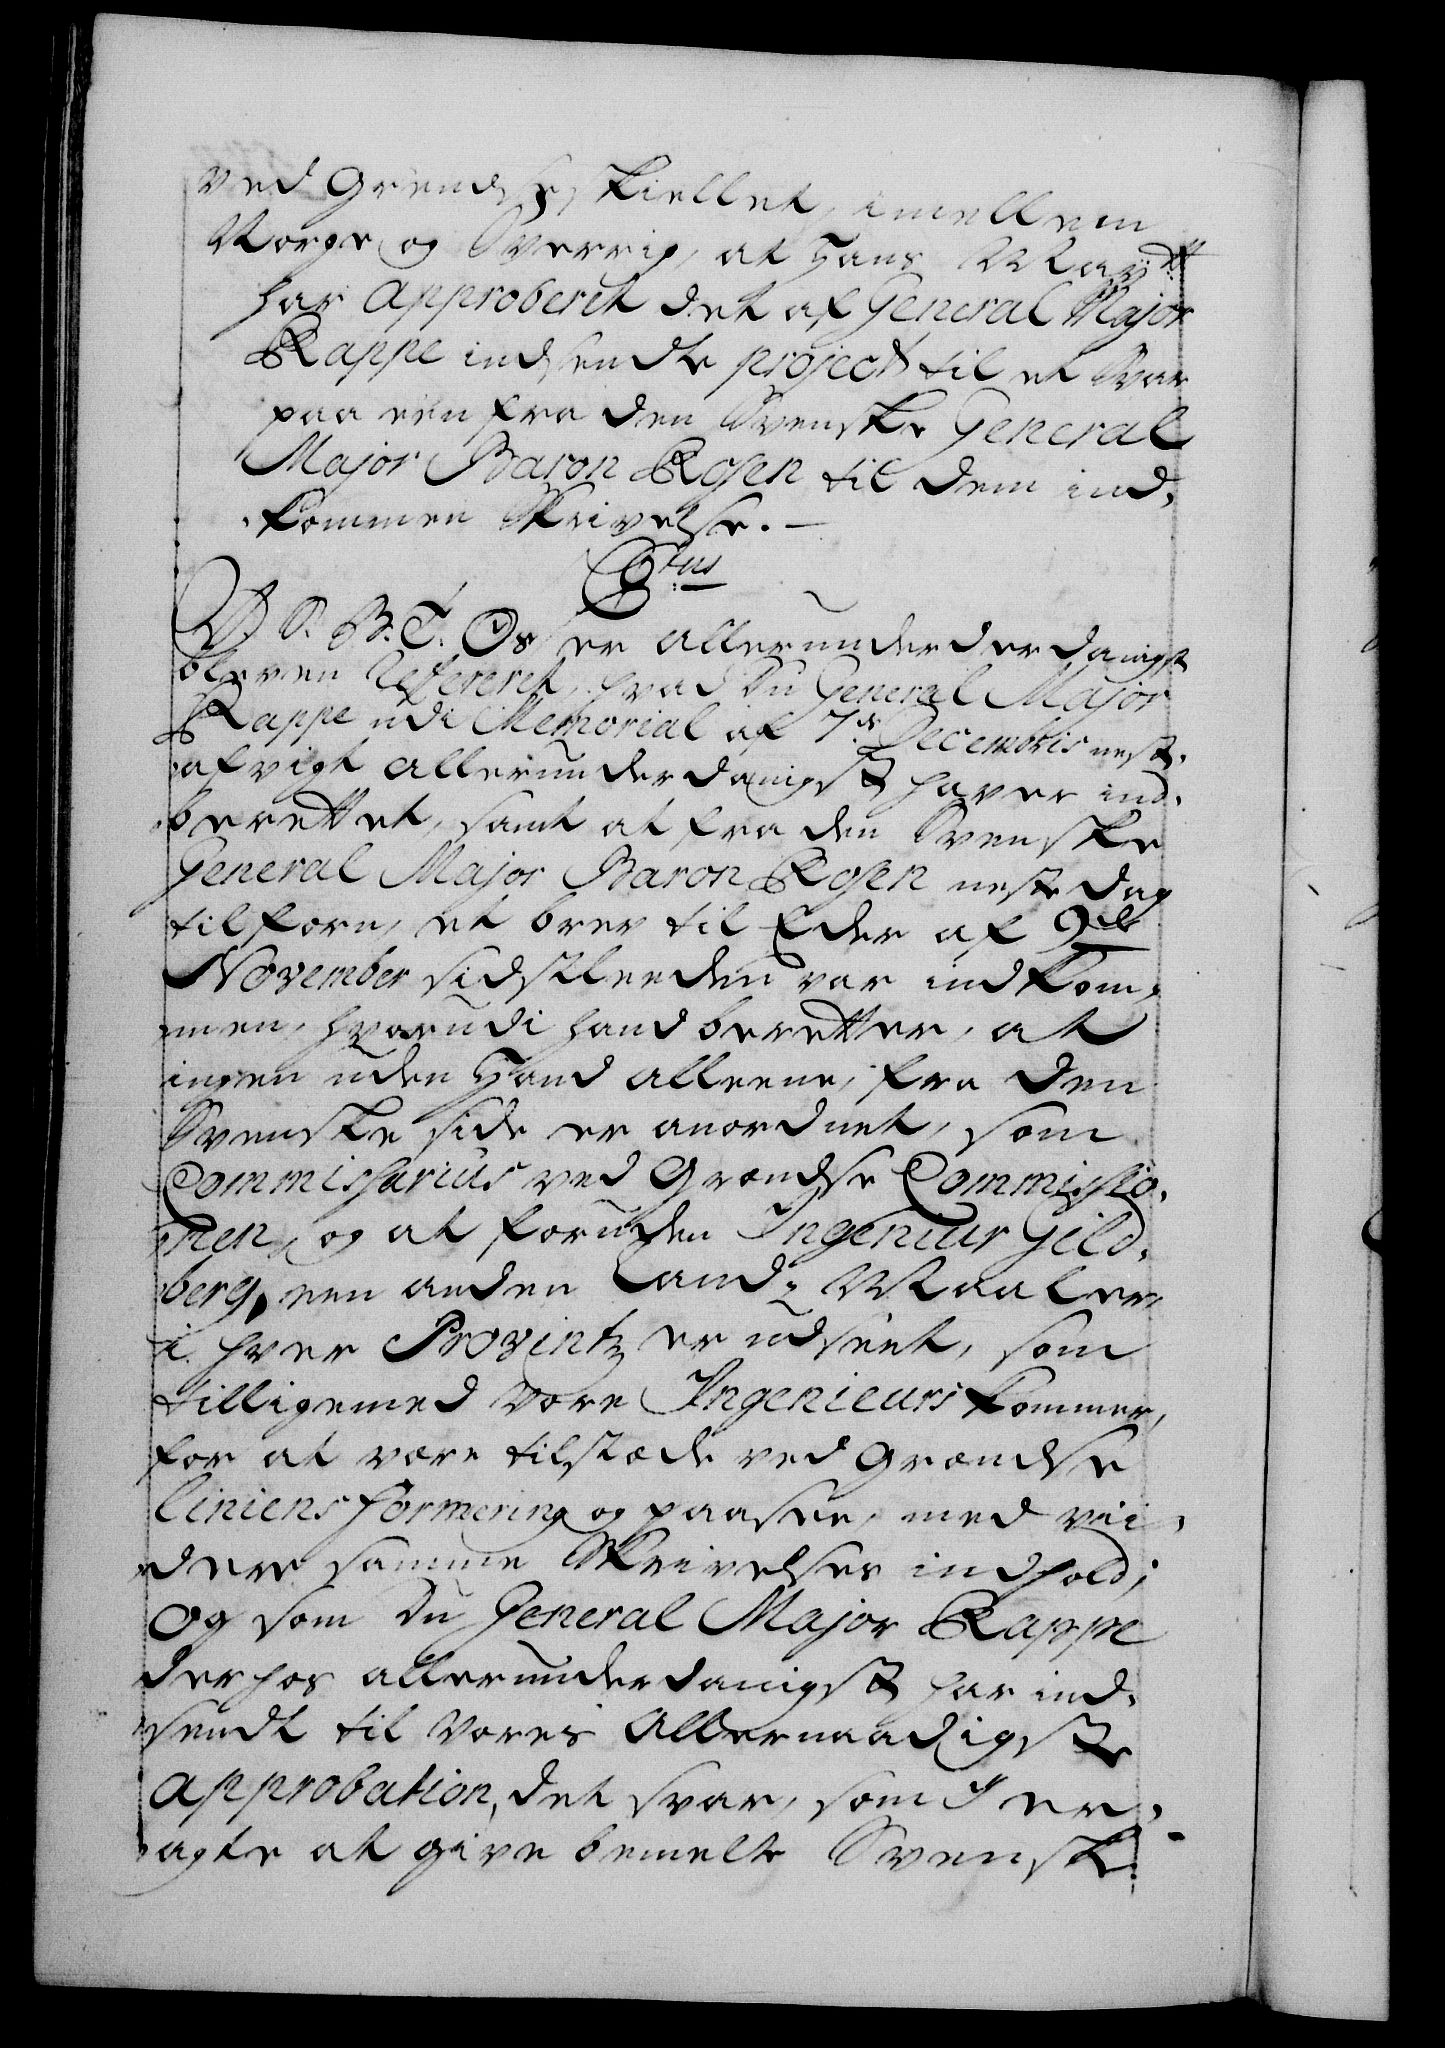 ved Grendse skiellet, imellem
Norge og Sverrig, at Hans Mayᵗᵗ
har approberet det af General Major
Rappe indsendte project til et Svar
paa een fra den Svenske General
Major Baron Rosen til dem ind-
kommen Skrivelse. —
C 6tus
V. S. B. T. Os er allerunderdanigst
bleven refereret, hvad Du General Major
Rappe udi Memorial af 7de Decembris nest-
afvigt allerunderdanigst haver ind-
berettet, samt at fra den Svenske
General Major Baron Rosen neste dag
tilforn, et brev til Eder af 9de
November sidstleeden var indkom-
men, hvorudi hand beretter, at
ingen uden Hand alleene, fra den
Svenske side er anordnet, som
Commissarius ved Grændse Commissio-
nen, og at foruden Ingenieur Gild-
berg, een anden Land-Maaler
i hver Provintz er udseet, som
tilligemed Vore Ingenieurs kommer,
for at være tilstæde ved Grændse
Liniens formering og paasee, med vii-
dere samme Skrivelses indhold;
Og som Du General Major Rappe
derhos allerunderdanigst har ind-
sendt til Vores Allernaadigste
approbation, det svar, som I er-
agte at give bemelte Svenske